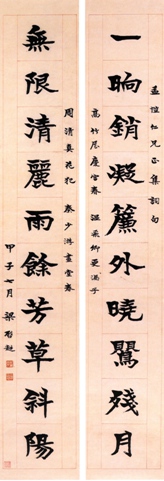 孟祖仁兄正集詞句
一晌銷凝簾外曉鶯殘月
高竹屋慶宮春 溫飛卿更漏子
無限清麗雨餘芳草斜陽
周清真花犯 秦少游畫堂春
甲子七月 梁啟超